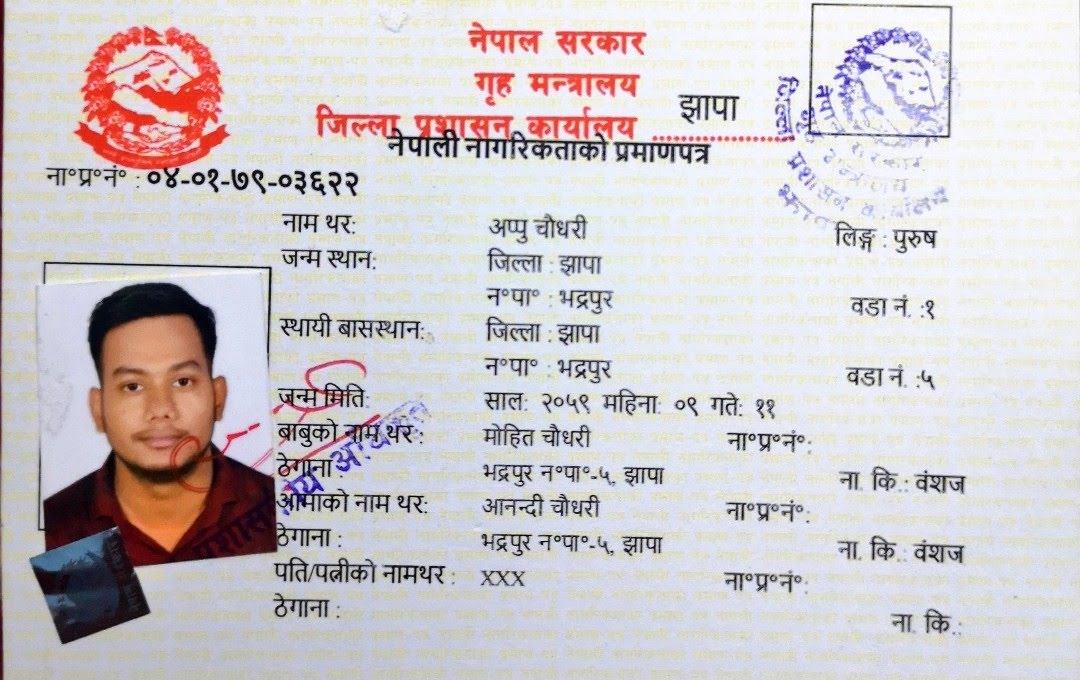 नेपाल सरकार
गृह मन्त्रालय
जिल्ला प्रशासन कार्यालय झापा
नेपाली नागरिकताको प्रमाणपत्र
ना°प्र°नं° : ०४-०१-७९-०३६२२
नाम थर: अप्पु चौधरी लिङ्ग : पुरुष
जन्म स्थान: जिल्ला : झापा
न°पा° : भद्रपुर वडा नं. :१
स्थायी बासस्थान: जिल्ला : झापा
न°पा° : भद्रपुर वडा नं. :५
जन्म मिति: साल: २०५९ महिना: ०९ गते: ११
बाबुको नाम थर : मोहित चौधरी ना°प्र°नं°:
ठेगाना : भद्रपुर न°पा°-५, झापा ना. कि.: वंशज
आमाको नाम थर: आनन्दी चौधरी ना°प्र°नं°:
ठेगाना : भद्रपुर न°पा°-५, झापा ना. कि.: वंशज
पति/पत्नीको नामथर : XXX ना°प्र°नं°:
ठेगाना : ना. कि.: